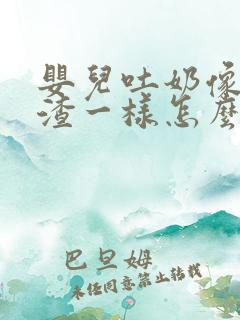 嬰兒吐奶像
渣一樣怎麼
巴旦姆
未经同意禁止转载